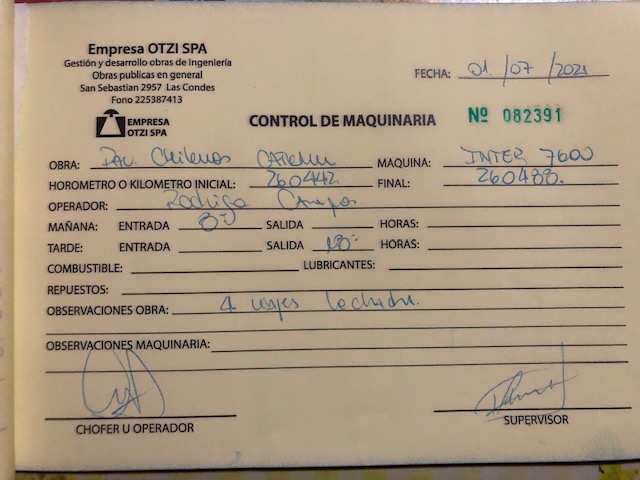 Empresa OTZI SPA
Gestión y desarrollo obras de Ingeniería
Obras publicas en general
San Sebastian 2957 Las Condes
Fono 225387413
FECHA: 01/07/2021
EMPRESA
OTZI SPA
CONTROL DE MAQUINARIA Nº 082391
OBRA: Chilenos MAQUINA: INTER 7600
HOROMETRO O KILOMETRO INICIAL: 260442. FINAL: 260488.
OPERADOR: Rodrigo Campos
MAÑANA: ENTRADA 8:0 SALIDA HORAS:
TARDE: ENTRADA SALIDA 18:- HORAS:
COMBUSTIBLE: LUBRICANTES:
REPUESTOS:
OBSERVACIONES OBRA: 4 viajes lechada.
OBSERVACIONES MAQUINARIA:
CHOFER U OPERADOR SUPERVISOR